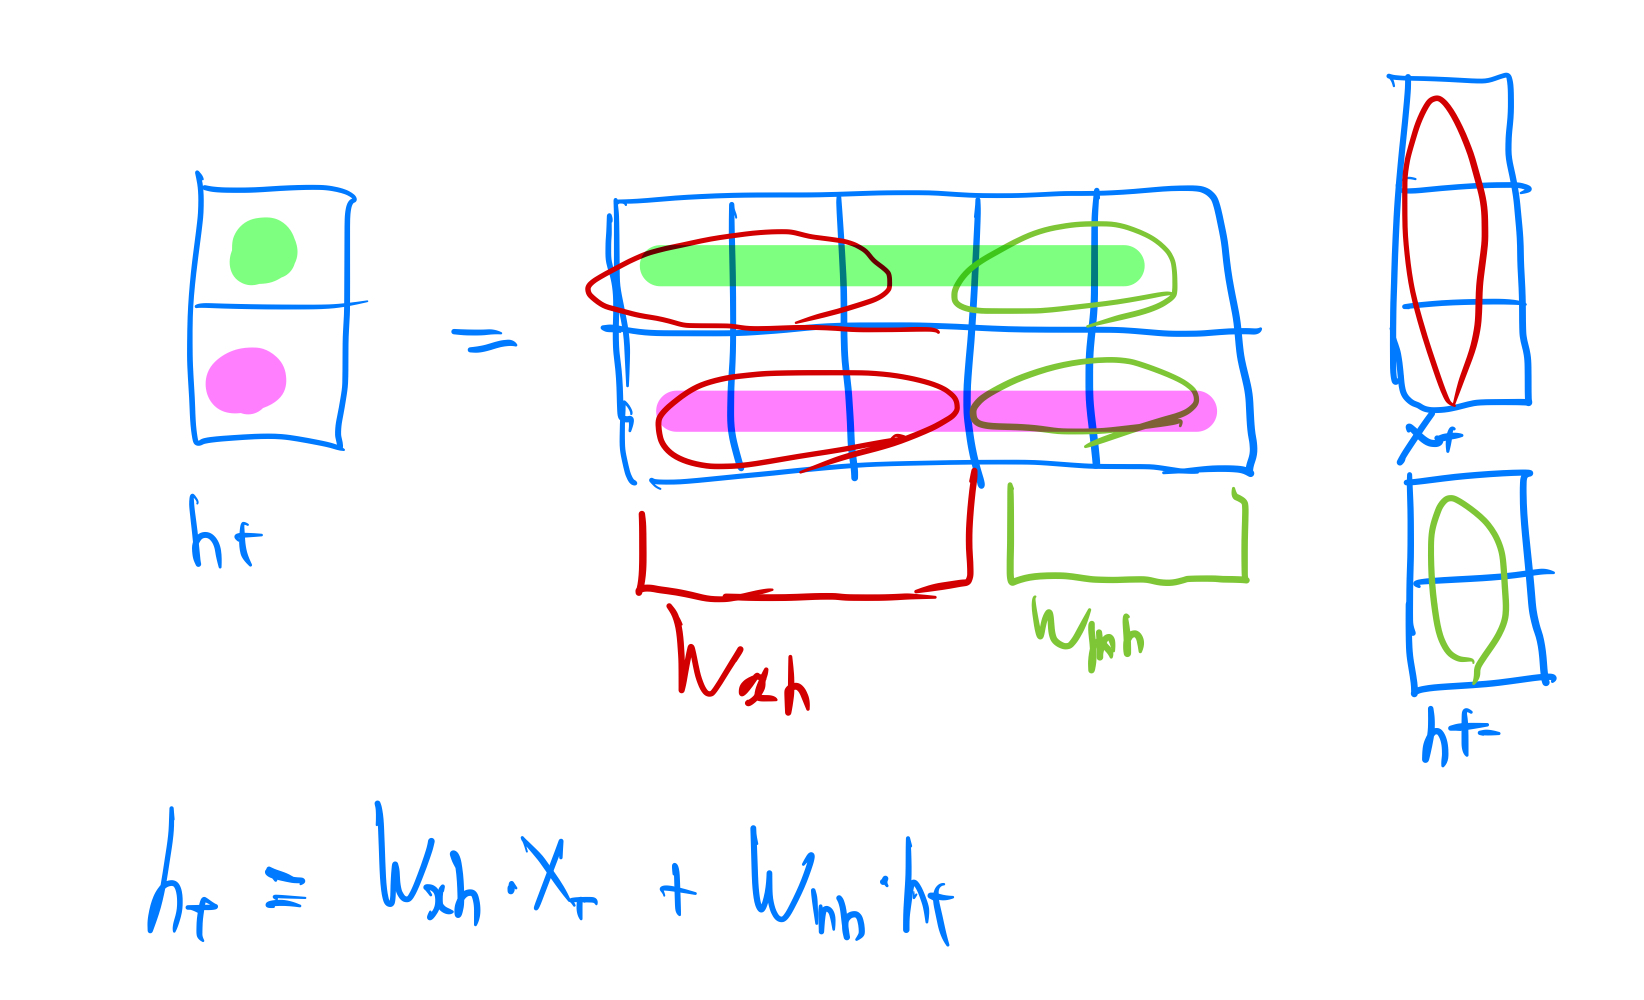 =
xt
ht
Wxh
Whh
ht-
ht = Wxh · Xt + Whh · ht